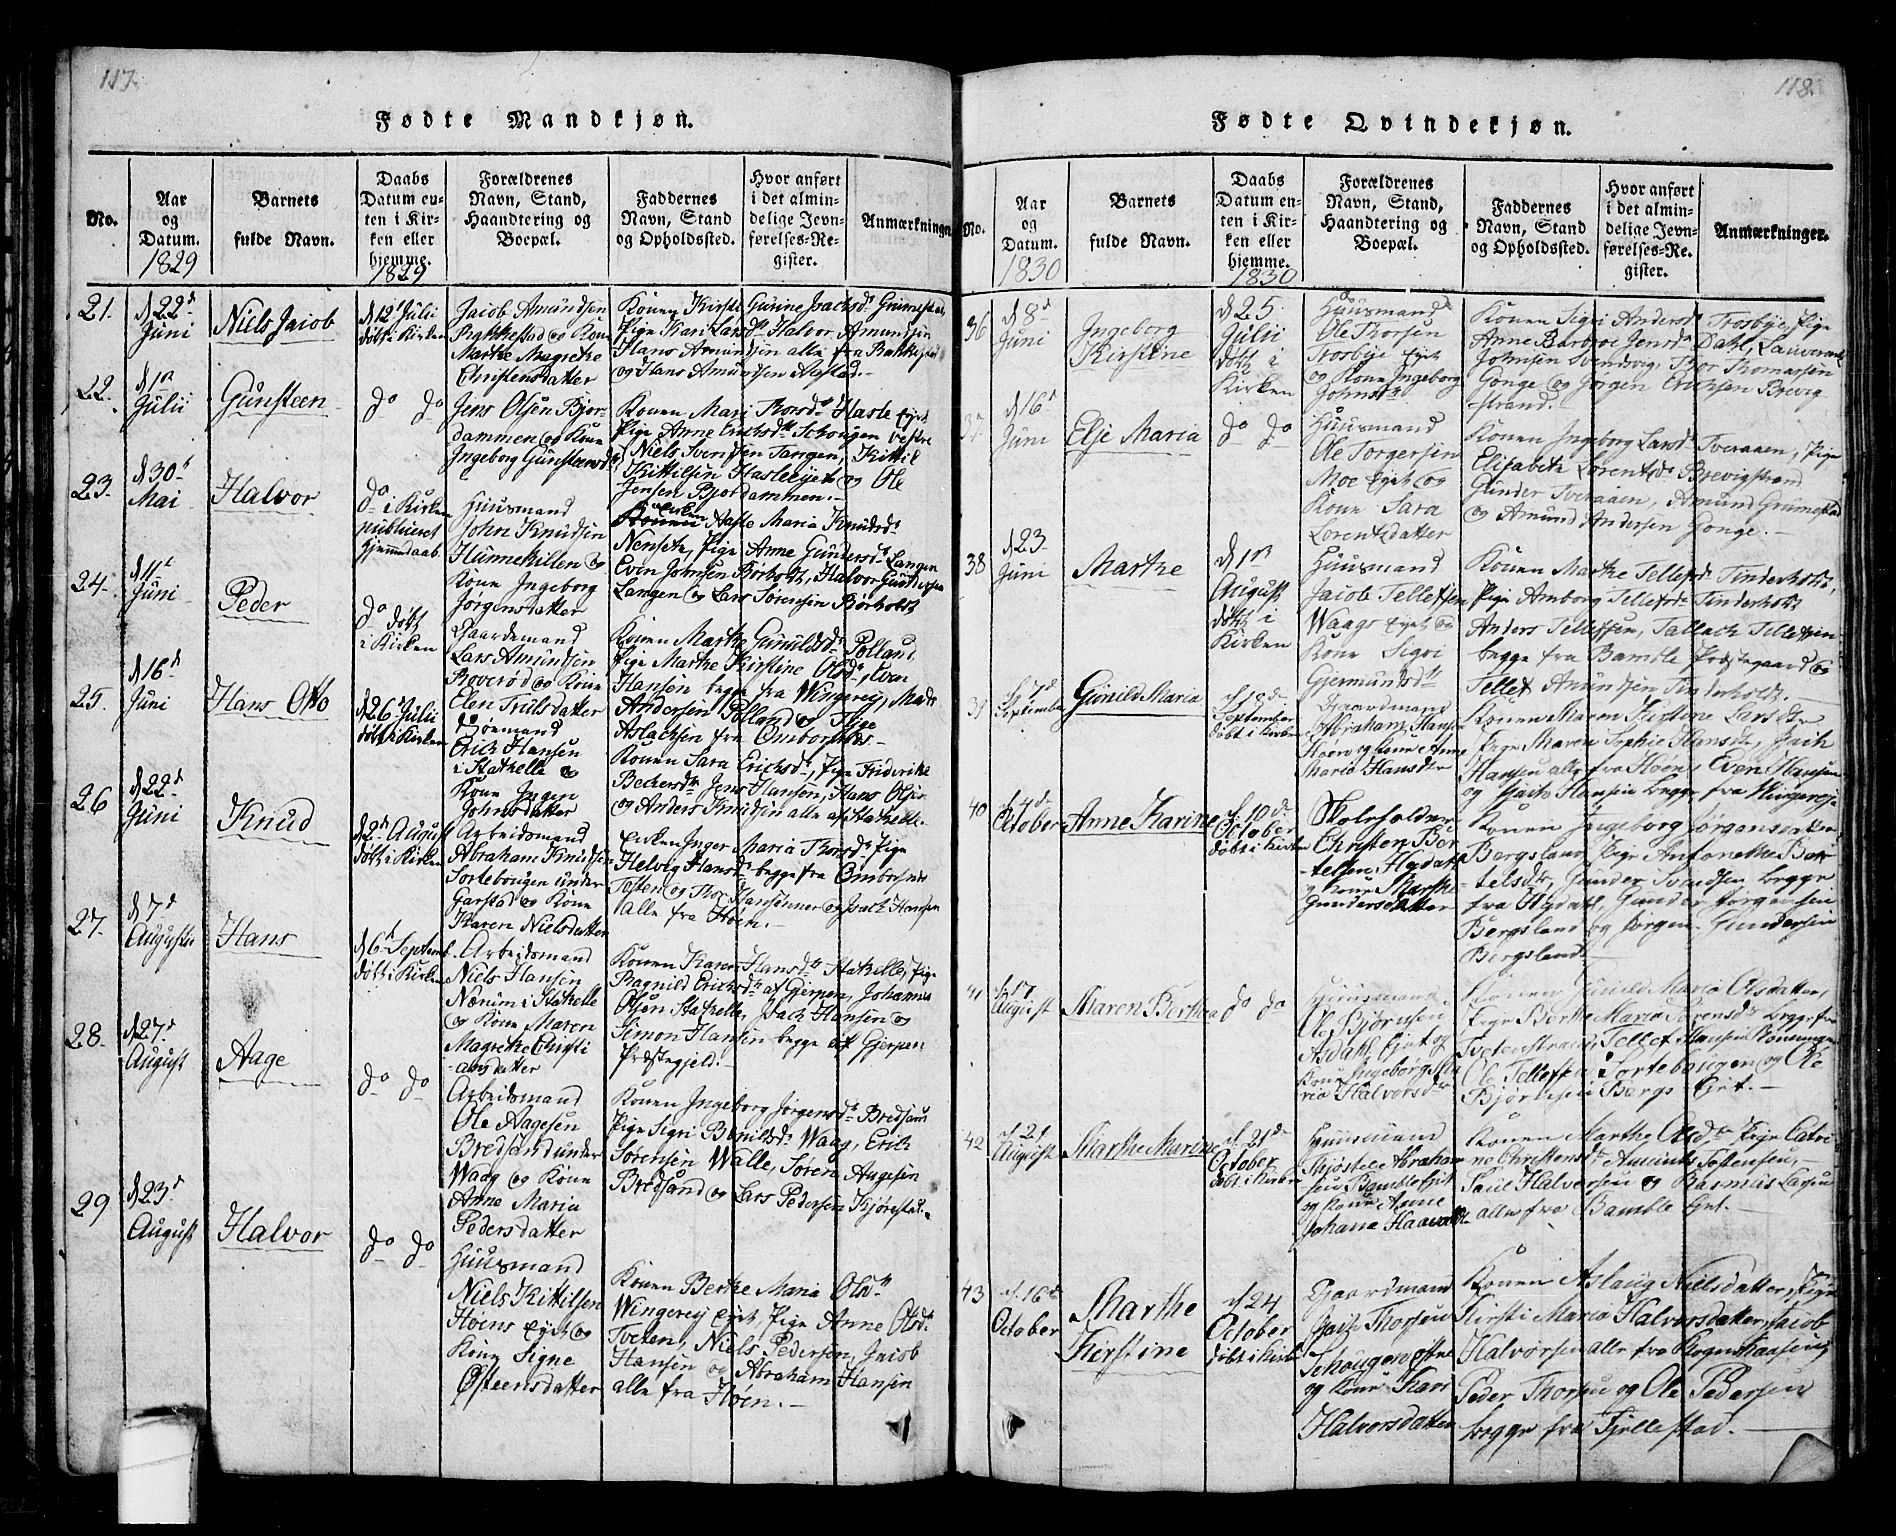 117.
Fødte Mandkjøn.
No.
Aar
og
Datum.
1829
Barnets
fulde Navn.
Daabs
Datum en-
ten i Kir-
ken eller
hjemme.
1829
Forældrenes
Navn, Stand,
Haandtering og
Boepæl.
Faddernes
Navn, Stand
og Opholdssted.
Hvor anført
i det almin-
delige Jevn-
førelses-Re-
gister.
Anmærkninge
21.
d 22d
Juni
Niels Jacob
d 12t Julii
døbt i Kirken
Jacob Amundsen
Rakkestad og Kone
Marthe Magrethe
Christensdatter
Konen Kirsti Gurine Isachsdr Grumestad,
Pige Kari Larsdtr Halvor Amundsen
Hans Amundsen alle fra
og Hans Amundsen
22.
d 1ste
Julii
Gunsteen
do do
Jens Olsen Bjor-
dammen og Kone
Ingeborg Gunsteensdr
Konen Mari Thorsdr Hasle Eyet
Pige Anne Ericksdtr Schougen vestre
Niels Svensen Tangen, Kittil
Kittilsen Hasleeyet og Ole
Jensen Bjordammen.-
23.
d 30d
Mai
Halvor
do i Kirken
publiceret
hjemmedaab.
Huusmand
John Knudsen
Hunnekillen og
Kone Ingeborg
Jørgensdatter
Enken Aasle Maria Knudsdr
Nenseth, Pige Anne Gundersdr Langen
Even Johnsen Børholt, Halvor Gundersen
Langen og Lars Sørensen Børholt
24.
d 11te
Juni
Peder
do døbt
i Kirken
Gaardemand
Lars Amundsen
Roverød og Kone
Elen Trulsdatter
Konen Marthe Gunildsdr Polland
Pige Marthe Kirstine Olsdr, Even
Hansen begge fra Wingerej, Mads
Andersen Polland og Thge
Aslachsen fra Omborsnæs-
25.
d 16d
Juni
Hans Otto
d 26d Julii
døbt i Kirken
Søemand
Erich Hansen
i Stathelle og
Kone Ingen
Johnsdatter
Konen Sara Ericksdr, Pige Friderike
Beckersdtr Jens Hansen, Hans Olsen
og Anders Knudsen alle af Stathelle.
26
d 22d
Juni
Knud
d 2d August
døbt i Kirken
Arbeidsmand
Abraham Knudsen
Sortebougen under
Garstad og Kone
Karen Nielsdatter
Enken Inger Maria Thorsdr Pige
Helvig Hansdr begge fra Omborsnæs
Tosten og Thor Hansønner og Isach Hansen
alle fra Høen.-
27.
d 7d
August
Hans
d 6d Septemb.
døbt i Kirken
Arbeidsmand
Niels Hansen
Nænim i Stathelle
og Kone Maren
Magrethe Christi
-ansdatter
Konen Karen Hansdtr Stathelle, Pige
Ragnild Ericksdtr af Gjerpen, Johannes
Olsen Stathelle, Isach Hansen og
Simon Hansen begge af Gjerpen
Præstegjeld.-
28.
d 27d
August
Aage
do do
Arbeidsmand
Ole Aagesen
Bredsand under
Waag og Kone
Anne Maria
Pedersdatter
Konen Ingeborg Jørgensdtr Bredsand
Pige Sigri Bønildsdr Waag, Erick
Sørensen Walle, Søren Aagesen
Bredsand og Lars Pedersen Kjørestad.-
29
d 23d
August
Halvor
do do
Huusmand
Niels Kittilsen
Høens Eyet og
Kone Signe
Østeensdatter
Konen Berthe Maria Olsdtr
Wingerej Eyet, Pige Anne Olsdr
Tveten, Niels Pedersen, Jacob
Hansen og Abraham Hansen
alle fra Høen.-
118.
Fødte Qvindekjøn.
No.
Aar
og
Datum.
1830
Barnets
fulde Navn.
Daabs
Datum en-
ten i Kir-
ken eller
hjemme.
1830
Forældrenes
Navn, Stand,
Haandtering og
Boepæl.
Faddernes
Navn, Stand
og Opholdssted.
Hvor anført
i det almin-
delige Jevn-
førelses-Re-
gister.
Anmærkninger.
36
d 8d
Juni
Ingeborg
Kirstine
d 25.
Julii
døbt i
Kirken
Huusmand
Ole Thorsen
Trosbye Eyet
og Kone Ingeborg
Johnsdr
Konen Sigri Andersdr Trosbye, Pige
Anne Barbroe Jensdr Dahl, Lauverants
Johnsen Svendsvig, Thor Thomassen
Gonge og Jørgen Ericksen Brevig-
strand.-
37.
d 16d
Juni
Else Maria
do do
Huusmand
Ole Torgersen
Moe Eyet og
Kone Sara
Lorentsdatter
Konen Ingeborg Larsdr Tveraaen, Pige
Elisabeth Lorentsdr Brevigstrand
Gunder Tveraaen, Amund Grumestad
og Amund Andersen Gonge.-
38
d 23-
Juni
Marthe
d 1ste
August
døbt i
Kirken
Huusmand
Jacob Tellefsen
Waags Eyet og
Kone Sigri
Gjermundsdtr
Konen Marthe Tellefsdr Tinderholt,
Pige Amborg Tellefsdr Tinderholt
Anders Tellefsen, Tallach Tellefsen
begge fra Bamble Præstegaard og
Tellef Amundsen Tinderholt.
39
d 7d
September
Gunild Maria
d 19d
September
døbt i Kirken
Gaardmand
Abraham Hansen
Hoen og Kone Anne
Maria Hansdtr
Konen Maren Kirstine Larsdtr
Pige Maren Sophie Hansdtr, Isach
Hansen alle fra Hoen, Even Hansen
og Isach Hansen begge fra Wingereje
40
d 4de
October
Anne Karine
d 10de
October
døbt i Kirken
Skoleholder
Christen Ber-
telsen Hydal
og Kone Marthe
Gundersdatter
Konen Ingeborg Jørgensdatter
Bergsland, Pige Antonette Ber-
telsdtr, Gunder Svendsen begge
fra Hydal, Gunder Jørgensen
Bergsland og Jørgen Gundersen
Bergsland.
41
d 17
August
Maren Berthea
do do
Huusmand
Ole Bjørnsen
Asdahl Eiet og
Kone Ingeborg Ma-
ria Halvorsdr
Konen Gunild Maria Olsdatter,
Pige Berthe Maria Sørensdr begge fra
Tellef Hansen
Ole Tellefsen Sortebougen og Ole
Bjørnsen Bergs Eiet.-
42
d 21
August
Marthe Marine
d 21de
October
døbt i Kirken
Huusmand
Thjøstel Abraham-
sen Bamble Eiet
og Kone Anne
Johana Haavoldsdtr
Konen Marthe Olsdtr Pige Catri-
ne Christensdr Amund Tostensen,
Poul Halvorsen og Rasmus Larsen
alle fra Bamble Eiet.-
43
d 16de
October
Marthe
Kirstine
d 24
October
døbt i Kirken
Gaardmand
Isach Thorsen
Schougen østre
og Kone Kari
Halvorsdatter
Konen Aslaug Nielsdatter, Pige
Kirsti Maria Halvorsdatter, Jacob
Halvorsen alle fra
Peder Thorsen og Ole Pedersen
begge fra Fjellestad.-